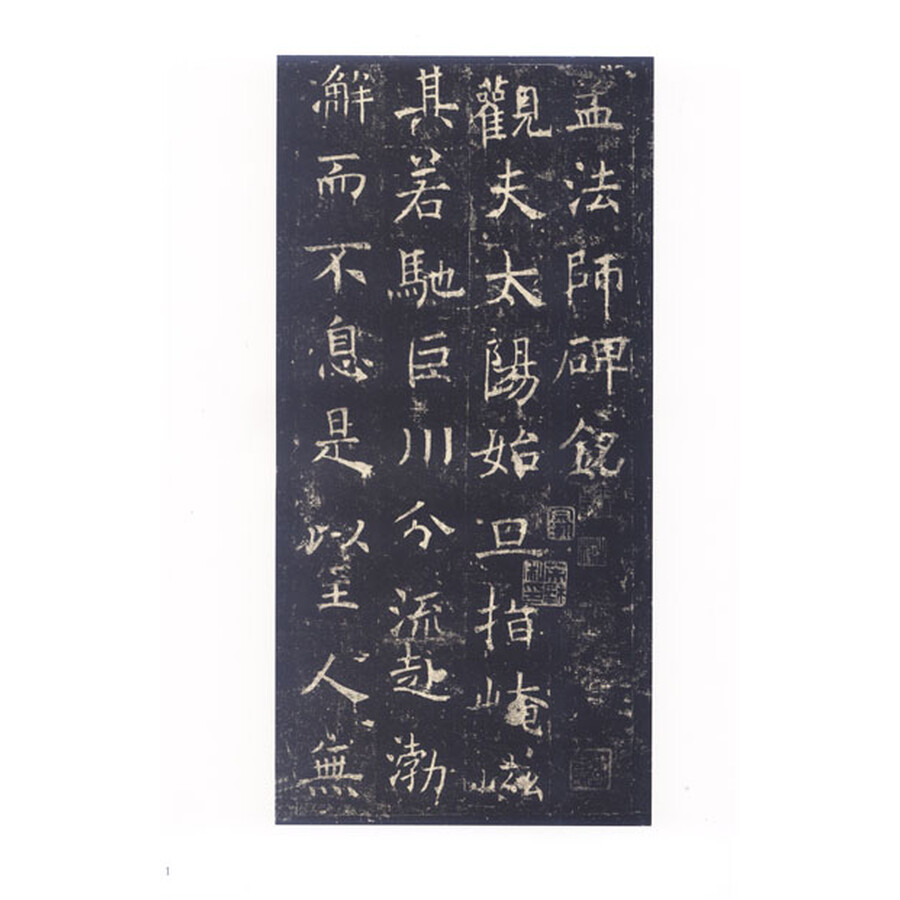 孟法師碑銘
觀夫太陽始旦指崦嵫
其若馳巨川分流赴渤
澥而不息是以至人無
1